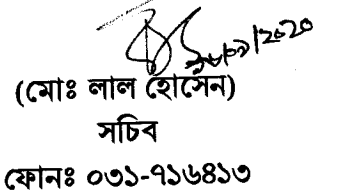 (মোঃ লাল হোসেন)
সচিব
ফোনঃ ০৩১-৭১৬৪১৩